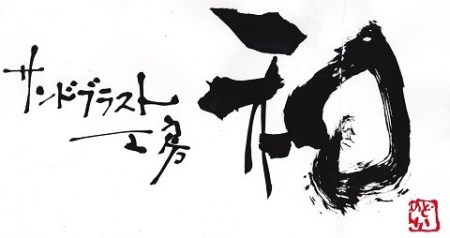 サンドブラスト
工房
和